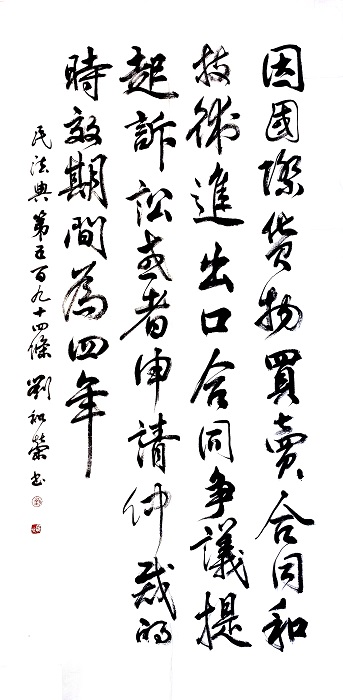 因國際貨物買賣合同和
技術進出口合同爭議提
起訴訟或者申請仲裁的
時效期間為四年
民法典第五百九十四條 劉和榮書